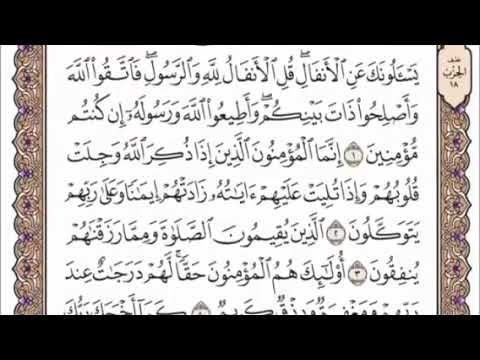 يَسْـَٔلُونَكَ عَنِ ٱلْأَنفَالِ ۖ قُلِ ٱلْأَنفَالُ لِلَّهِ وَٱلرَّسُولِ ۖ فَٱتَّقُوا۟ ٱللَّهَ
وَأَصْلِحُوا۟ ذَاتَ بَيْنِكُمْ ۖ وَأَطِيعُوا۟ ٱللَّهَ وَرَسُولَهُۥٓ إِن كُنتُم
مُّؤْمِنِينَ ١ إِنَّمَا ٱلْمُؤْمِنُونَ ٱلَّذِينَ إِذَا ذُكِرَ ٱللَّهُ وَجِلَتْ
قُلُوبُهُمْ وَإِذَا تُلِيَتْ عَلَيْهِمْ ءَايَـٰتُهُۥ زَادَتْهُمْ إِيمَـٰنًا وَعَلَىٰ رَبِّهِمْ
يَتَوَكَّلُونَ ٢ ٱلَّذِينَ يُقِيمُونَ ٱلصَّلَوٰةَ وَمِمَّا رَزَقْنَـٰهُمْ
يُنفِقُونَ ٣ أُو۟لَـٰٓئِكَ هُمُ ٱلْمُؤْمِنُونَ حَقًّا ۚ لَّهُمْ دَرَجَـٰتٌ عِندَ
رَبِّهِمْ وَمَغْفِرَةٌ وَرِزْقٌ كَرِيمٌ ٤ كَمَآ أَخْرَجَكَ رَبُّكَ
نصف
الحزب
١٨